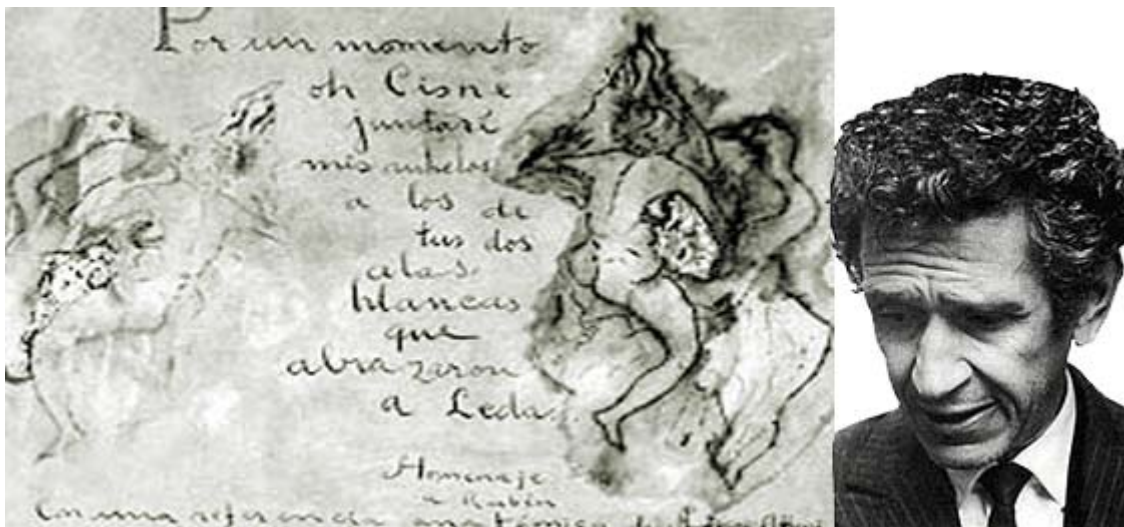 Por un momento
oh Cisne
juntaré
mis anhelos
a los de
tus dos
alas
blancas
que
abrazaron
a Leda
Homenaje
a Rubén
Con una referencia anatómica de